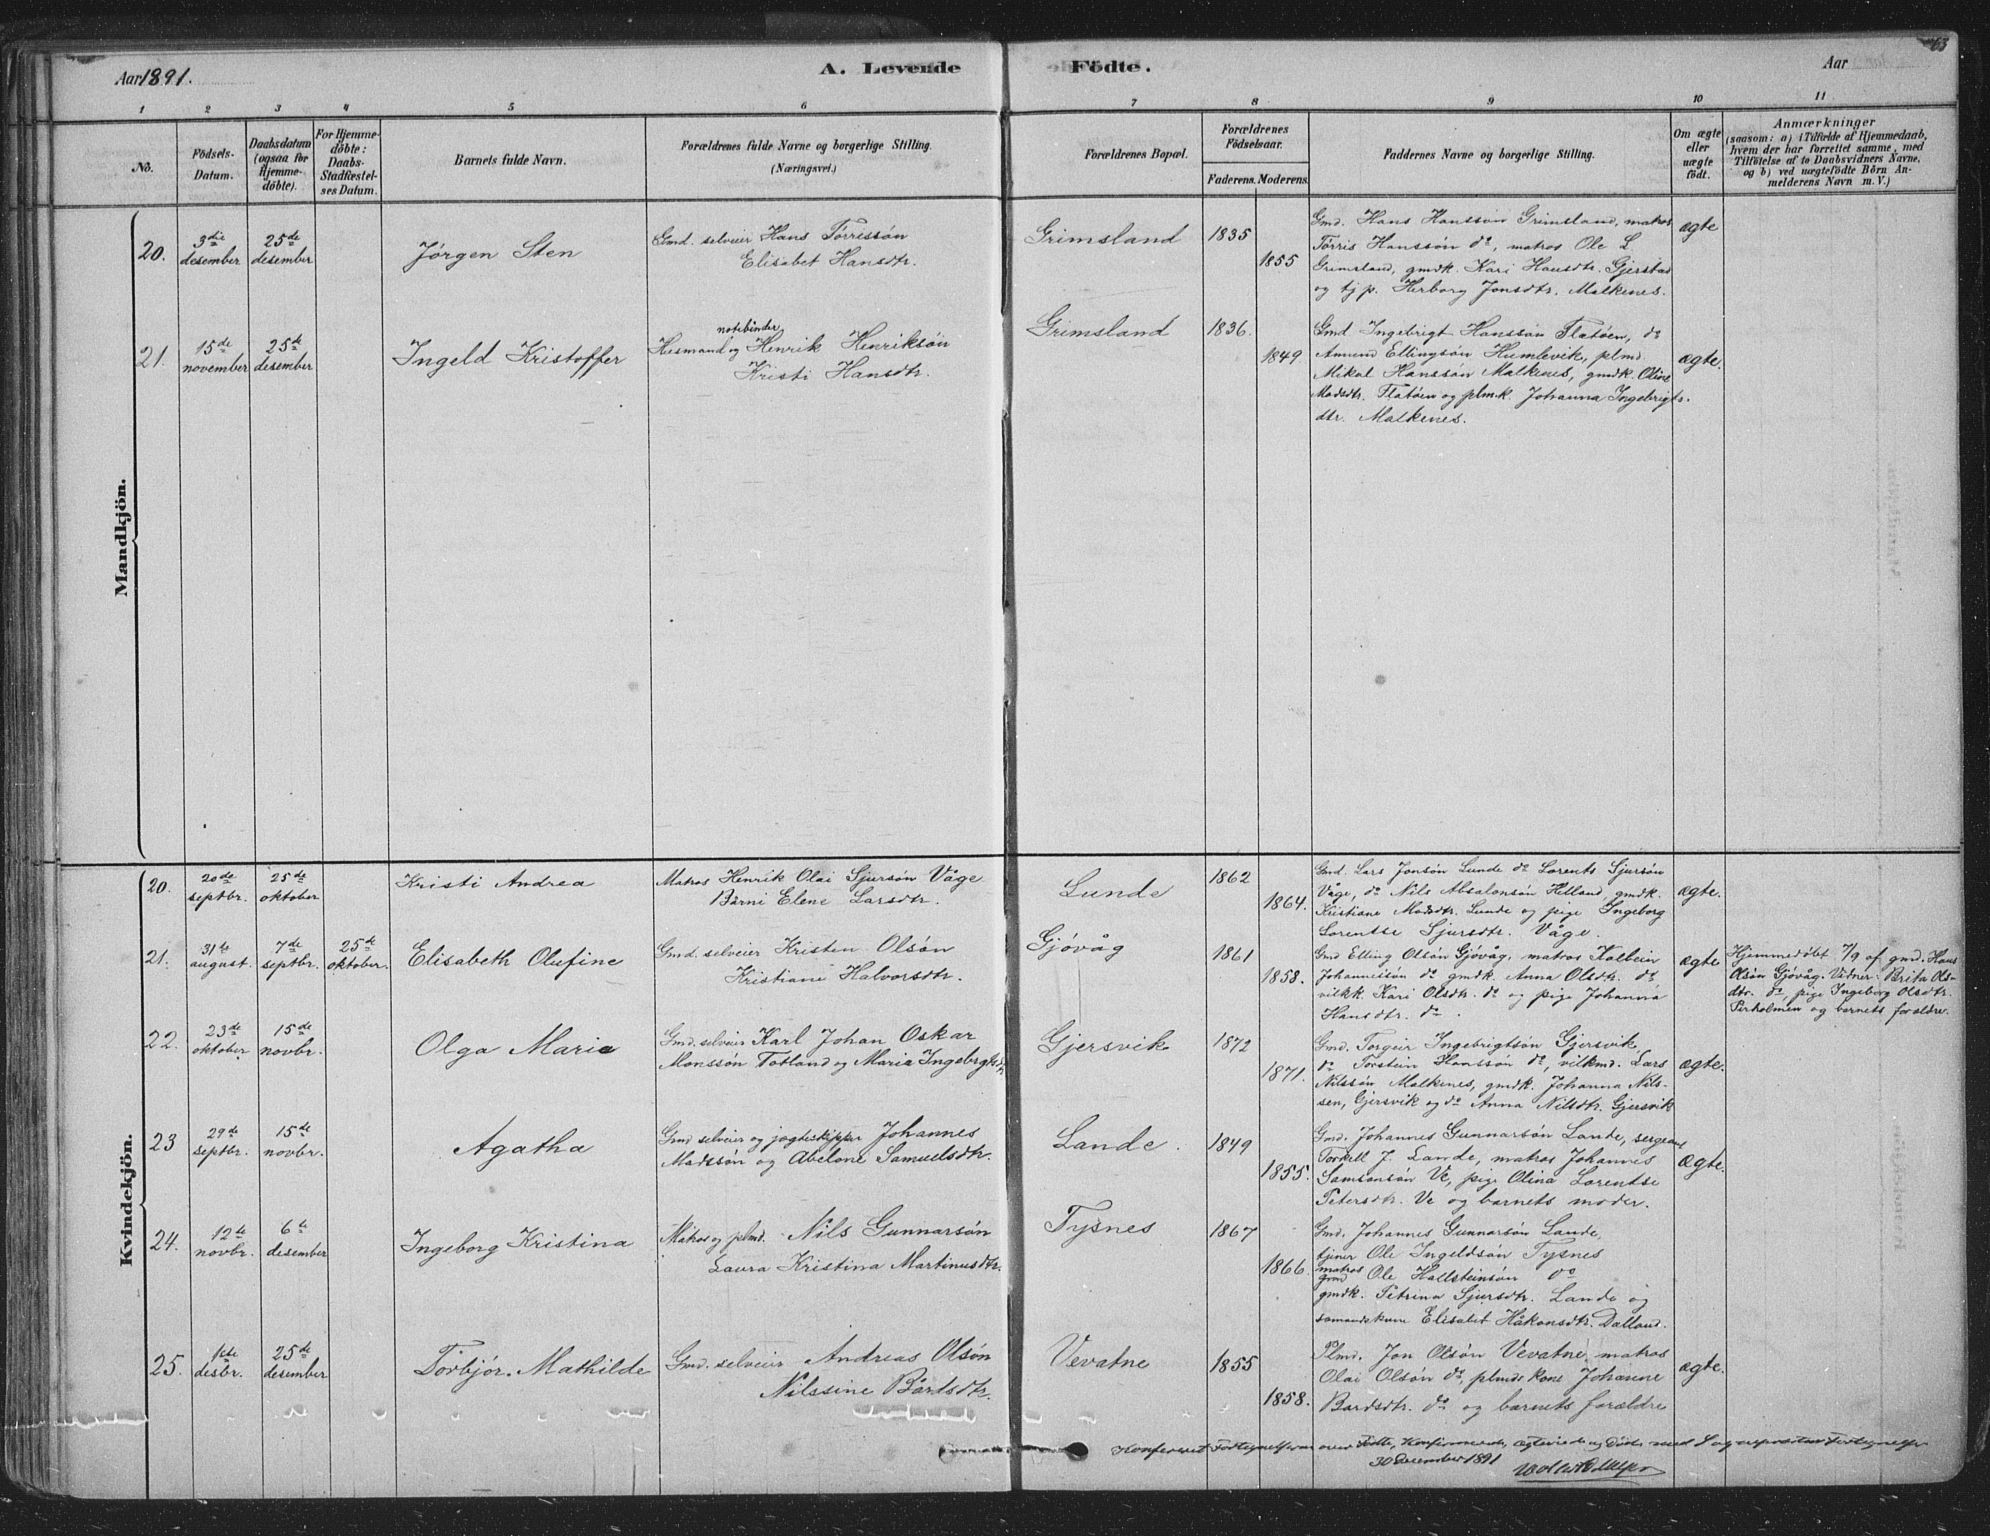 63
Aar 1891.
A. Levende Födte.
Aar
1 2 3 4 5 6 7 8 9 10 11
No.
Födsels-
Datum.
Daabsdatum
(ogsaa for
Hjemme-
döbte).
For Hjemme-
döbte:
Daabs-
Stadfæstel-
ses Datum.
Barnets fulde Navn.
Forældrenes fulde Navne og borgerlige Stilling.
(Næringsvei.)
Forældrenes Bopæl.
Forældrenes
Födselsaar.
Faderens. Moderens.
Faddernes Navne og borgerlige Stilling.
Om ægte
eller
uægte
födt.
Anmærkninger
(saasom: a) i Tilfælde af Hjemmedaab,
hvem der har forrettet samme, med
Tilföielse af to Daabsvidners Navne,
og b) ved uægtefödte Börn An-
melderens Navn m. V.)
Mandkjön.
20.
3die
desember
25de
desember
Jørgen Sten
Gmd. selveier Hans Tørrissøn
Elisabet Hansdtr.
Grimsland
1835
1855
Gmd. Hans Hanssøn Grimsland, matros
Tørris Hanssøn do, matros Ole L
Grimsland, gmdk. Kari Hansdtr. Gjerstad
og tj p. Herborg Jonsdtr. Malkenes.
ægte
21.
15de
november
25de
desember
Ingeld Kristoffer
notebinder
Husmand og Henrik Henriksøn
Kristi Hansdtr.
Grimsland
1836.
1849
Gmd Ingebrigt Hanssøn Flatøen, do
Amund Ellingsøn Humlevik, plmd.
Mikal Hanssøn Malkenes, gmdk. Oline
Madsdtr. Flatøen og plmk. Johanna Ingebrigts-
dtr. Malkenes.
ægte.
Kvindekjön.
20.
20de
septbr.
25de
oktober
Kristi Andrea
Matros Henrik Olai Sjursøn Våge
Bårni Elene Larsdtr.
Lunde
1862
1864.
Gmd. Lars Jonsøn Lunde do Lorents Sjursøn
Våge, do Nils Absalonsøn Helland, gmdk.
Kristiane Madsdtr. Lunde og pige Ingeborg
Lorentse Sjursdtr. Våge.
ægte.
21.
31te
august.
7de
septbr.
25de
oktober.
Elisabeth Olufine
Gmd. selveier Kristen Olsøn
Kristiane Halvorsdtr.
Gjøvåg
1861
1858.
Gmd Elling Olsøn Gjøvåg, matros Kolbein
Johannessøn do gmdk. Anna Olsdtr. do
vilkk. Kari Olsdtr. do og pige Johanna
Hansdtr. do.
ægte
Hjemmedøbt 7/9 af gmd. Hans
Olsøn Gjøvåg. Vidner: Brita Ols-
dtr. do, pige Ingeborg Olsdtr.
Pirholmen og barnets forældre.
22.
23de
oktober
15de
novbr.
Olga Marie
Gmd. selveier Karl Johan Oskar
Monssøn Totland og Maria Ingebrgtsdtr.
Gjersvik
1872
1871.
Gmd. Torgeir Ingebrigtsøn Gjersvik,
do Torstein Hanssøn do, vilkmd. Lars
Nilssøn Malkenes, gmdk. Johanna Nils-
sen, Gjersvik og do Anna Nilsdtr. Gjersvik
ægte.
23
29de
septbr.
15de
novbr.
Agatha
Gmd selveier og jægteskipper Johannes
Madssøn og Abelone Samuelsdtr.
Lande.
1849
1855.
Gmd. Johannes Gunnarsøn Lande, sergeant
Torkell J. Lande, matros Johannes
Samsonsøn Ve, pige Olina Lorentse
Petersdtr. Ve og barnets moder.
ægte.
24.
12te
novbr.
6te
desember
Ingeborg Kristina
Matros og plmd. Nils Gunnarsøn
Laura Kristina Martinusdtr.
Tysnes
1867
1866.
Gmd. Johannes Gunnarsøn Lande,
tjener Ole Ingeldsøn Tysnes
matros
gmd Ole Hallsteinsøn do
gmdk. Petrina Sjursdtr. Lande og
Elisabet Håkonsdtr. Dalland.
25.
1ste
desbr.
25de
desember
Torbjør Mathilde
Gmd. selveier Andreas Olsøn
Nilssine Bårdsdtr.
Vevatne
1855
1858.
Plmd. Jon Olsøn Vevatne, matros
Olai Olsøn do, plmds kone Johanne
Bardsdtr. do og barnets forældre
ægte.
Konfereret Fortegnelserne over Fødte, Konfirmerede, Ægteviede og Døde med
30 December 1891